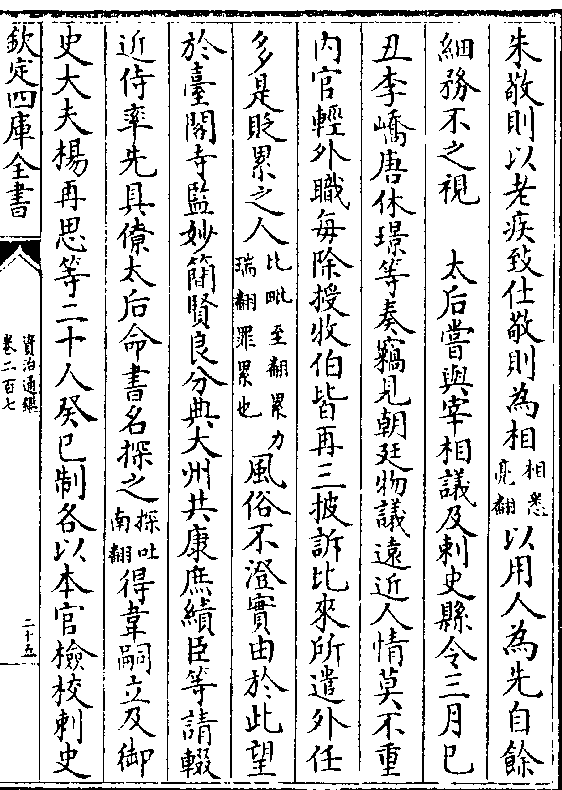 朱敬則以老疾致仕敬則為相相悉亮翻以用人為先自餘
細務不之視　太后嘗與宰相議及刺史縣令三月己
丑李嶠唐休璟等奏竊見朝廷物議遠近人情莫不重
内官輕外職每除授牧伯皆再三披訴比來所遣外任
多是貶累之人比毗至翻累力瑞翻罪累也風俗不澄實由於此望
於臺閣寺監妙簡賢良分典大州共康庶績臣等請輟
近侍率先具僚太后命書名探之探吐南翻得韋嗣立及御
史大夫楊再思等二十人癸巳制各以本官檢校刺史
欽定四庫全書
資治通鑑
卷二百七
二十五